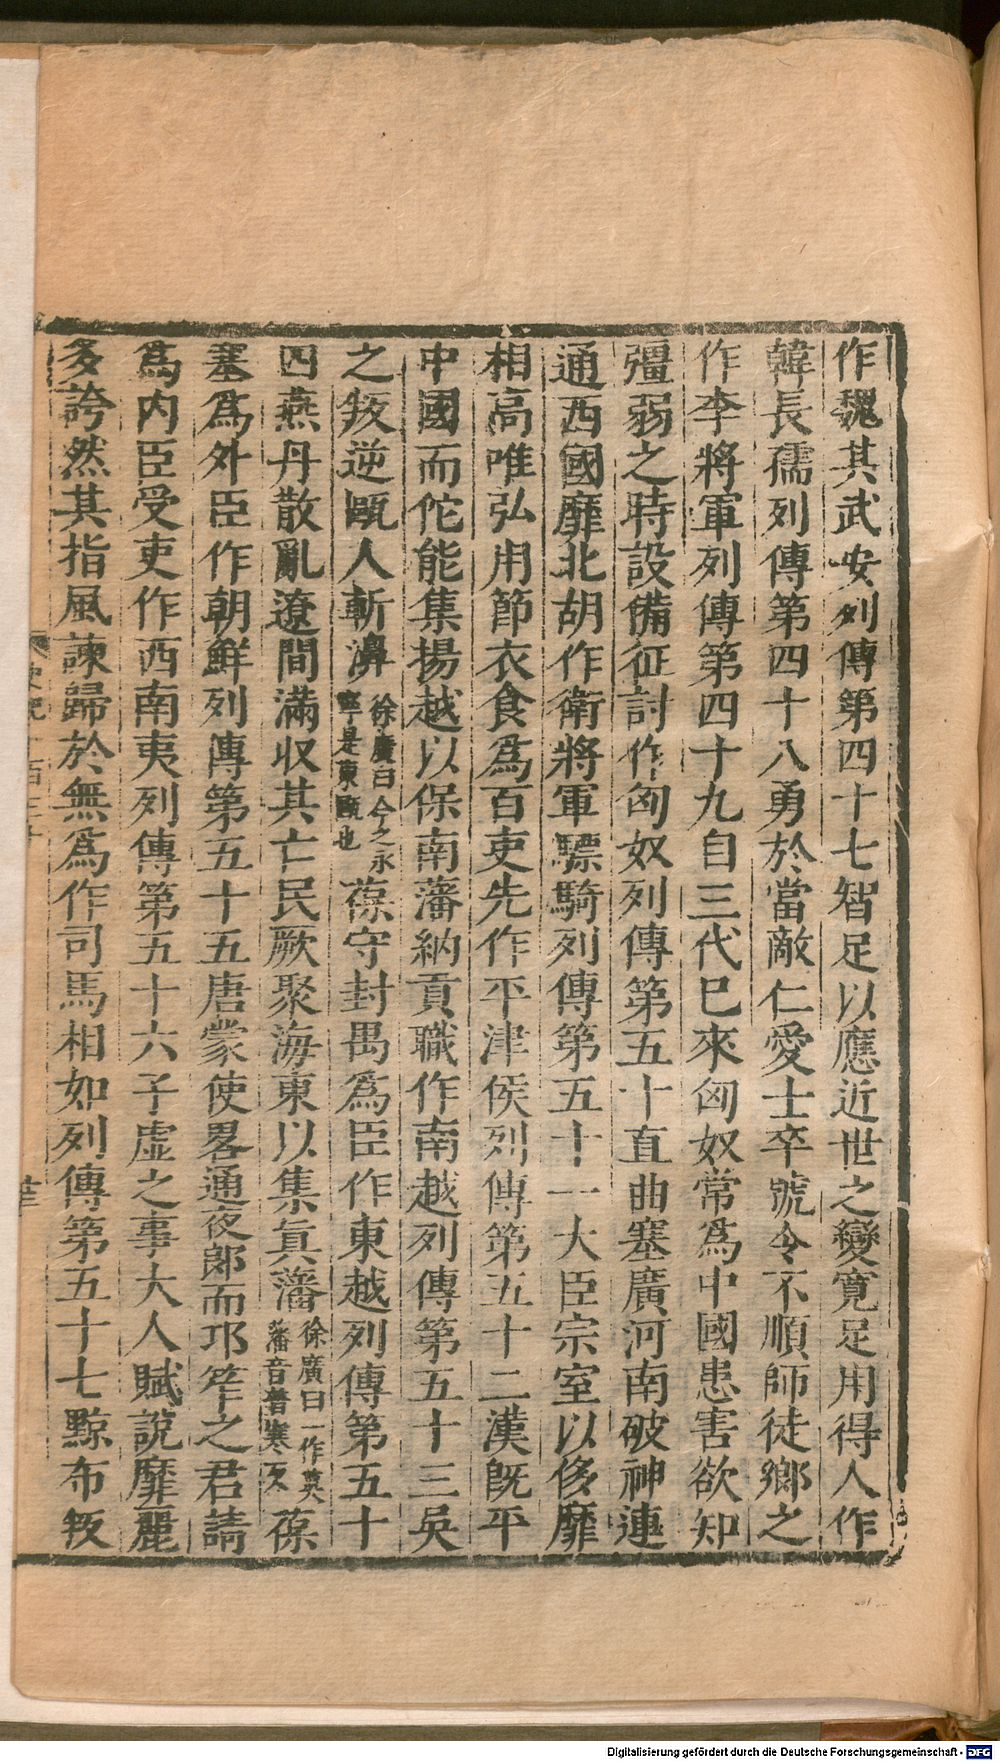 作魏其武安列傳第四十七智足以應近世之變寬足用得人作
韓長孺列傳第四十八勇於當敵仁愛士卒號令不順師徒鄉之
作李將軍列傳第四十九自三代巳來匈奴常爲中國患害欲知
彊弱之時設備征討作匈奴列傳第五十直曲塞廣河南破神連
通西國靡北胡作衛將軍驃騎列傳第五十一大臣宗室以侈靡
相高唯弘用節衣食爲百吏先作平津侯列傳第五十二漢旣平
中國而佗能集揚越以保南藩納貢職作南越列傳第五十三吳
之叛逆甌人斬濞徐廣曰今之永寧是東甌也葆守封禺爲臣作東越列傳第五十
四燕丹散亂遼間滿收其亡民厥聚海東以集眞藩徐廣曰一作莫藩音普寒反葆
塞爲外臣作朝鮮列傳第五十五唐蒙使畧通夜郎而邛筰之君請
爲内臣受吏作西南夷列傳第五十六子虛之事大人賦說靡麗
多誇然其指風諫歸於無爲作司馬相如列傳第五十七黥布叛
Digitalisierung gefördert durch die Deutsche Forschungsgemeinschaft - DFG